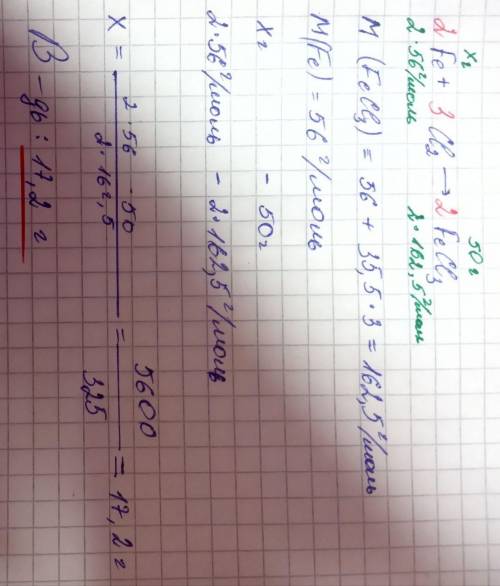 xг 50г
2Fe + 3Cl₂ → 2FeCl₃
2·56г/моль 2·162,5г/моль
M (FeCl₃) = 56 + 35,5·3 = 162,5 г/моль
M(Fe) = 56 г/моль
xг - 50г
2·56г/моль - 2·162,5г/моль
X = 2·56·50 / 2·162,5 = 5600 / 325 = 17,2 г
В-дь: 17,2 г